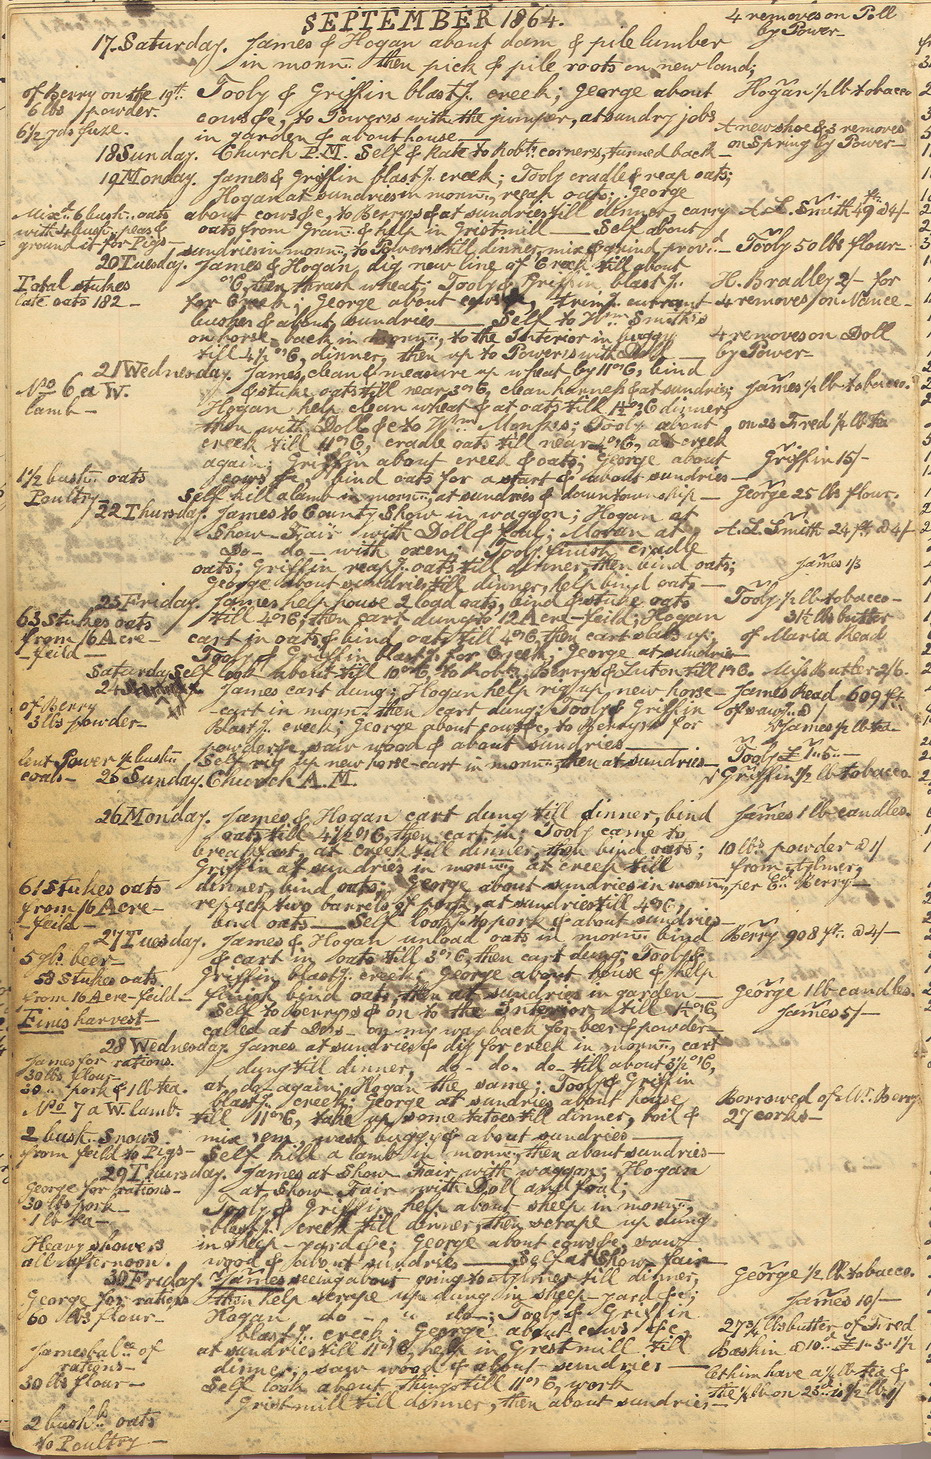 SEPTEMBER 1864.
4 removes on Poll
by Power-
17 Saturday. James & Hogan about dam & pile lumber
in mornn. then pick & pile roots on new land;
of Berry on the 19th
6 lbs powder.
6 1/2 yds fuze.
Tooly & Griffin blastg. creek; George about
cows &c, to Powers with the jumper, at sundry jobs
in garden & about house
Hogan 1/2 lb tobacco
4 new shoe & 3 removes
on Spring by Power-
18 Sunday. Church P.M. Self & Kate to Robts. corners, turned back-
19 Monday. James & Griffin blastg. creek; Tooly cradle & reap oats;
Hogan at sundries in mornn., reap oats; George
Mixd. 6 bush. oats
with 4 bush. peas &
ground it for Pigs-
about cows &c, to Berrys & at sundries till dinner, carry
oats from Gran. & help in Gristmill - Self about
sundries in mornn., to Powers till dinner, mix & grind provd.
A.L. Smith 49 ft. @ 4/-
Tooly 50 lbs flour-
20 Tuesday. James & Hogan, dig new line of Creek till about
Total stukes
late oats 182-
6, then thrash wheat; Tooly & Griffin, blastg.
for Creek; George about cows &c, trimg. currant
bushes & about sundries - Self to Wm. Smith's
on horse-back in mornn., to the Interior in buggy
till 4 1/2 o'c, dinner, then up to Powers with Doll-
H. Bradley 2/- for
4 removes on Nance-
4 removes on Doll
by Power-
21 Wednesday. James, clean & measure up wheat by 11 o'c, bind
No 6 a W.
lamb-
& stuke oats till near 3 o'c, clean harness & at sundries;
Hogan help clean wheat & at oats till dinner,
then with Doll &c to Wm. Monks; Tooly about
creek till 11 o'c, cradle oats till near 4 o'c, at creek
again; Griffin about creek & oats; George about
cows &c, bind oats for a start & about sundries-
James 1/2 lb tobacco.
on 23 Fred 1/2 lb tea
Griffin 15/-
1 1/2 bush. oats
Poultry-
Self kill a lamb in mornn., at sundries & down township-
George 25 lbs flour.
22 Thursday. James to County Show in waggon; Hogan at
Show-Fair with Doll & foul; Moran at
Do- do- with oxen; Tooly finish cradle
oats; Griffin reapg. oats till dinner, then bind oats;
George about sundries till dinner, help bind oats-
A.L. Smith 24 ft. @ 4/-
James 1/3
23 Friday. James help house 2 load oats, bind & stuke oats
63 Stukes oats
from 16 Acre-
-feild-
till 4 o'c, then cart dung to 12 Acre-feild; Hogan
cart in oats & bind oats till 4 o'c, then cart oats up;
Tooly & Griffin blastg. for Creek; George at sundries-
Tooly 1/2 lb tobacco-
3 1/2 lbs butter
of Maria Read
Self look about till 10 o'c, to Robts., Berrys & Luton till 1 o'c.
Miss Butler 2/6.
Saturday
24
James cart dung; Hogan help rig up new horse-
of Berry
3 lbs powder-
-cart in mornn. then cart dung; Tooly & Griffin
blastg. creek; George about cows &c, to Berrys for
powder, saw wood & about sundries
James Read - 609 ft.
of sawg. @
James 1/2 lb tea
lent Power 1/2 bush.
coals-
Self rig up new horse-cart in mornn., then at sundries-
Tooly £ 1-5-
25 Sunday. Church A.M.
Griffin 1/2 lb tobacco
26 Monday. James & Hogan cart dung till dinner, bind
oats till 4 1/2 o'c, then cart in; Tooly came to
breakfast, at creek till dinner, then bind oats;
Griffin at sundries in mornn., at creek till
dinner, bind oats; George about sundries in mornn.,
repack two barrels of pork, at sundries till 4 o'c,
bind oats - Self look to pork & about sundries
61 Stukes oats
from 16 Acre-
-feild-
James 1 lb candles.
10 lbs powder @ 1/
from Aylmer,
per Berry-
27 Tuesday. James & Hogan unload oats in mornn. bind
5 beer-
58 stukes oats
from 16 Acre-feild-
Finis harvest-
& cart in oats till 3 o'c, then cart dung; Tooly &
Griffin blastg. creek; George about house & help
bind oats, then at sundries in garden
Self to Berrys & on to the Interior till
called at Do's- on my way back for beer & powder-
Berry 908 ft. @ 4/-
George 1 lb candles.
James 5/-
28 Wednesday. James at sundries & dig for creek in mornn., cart
James for rations.
30 lbs flour-
pork & 1 lb tea.
No 7 a W. lamb.
2 bush. Snows
from feild to Pigs-
dung till dinner, do- do- do- till about 3 1/2 o'c,
at do-again; Hogan the same; Tooly & Griffin
blastg. creek; George at sundries about house
till 11 o'c, take up some tatoes till dinner, boil &
mix 'em, wash buggy & about sundries
Self kill a lamb in mornn., then about sundries-
Borrowed of Wm. Berry
27 corks-
29 Thursday. James at Show-Fair with waggon; Hogan
George for rations-
30 lbs pork-
1 lb tea-
Heavy showers
all afternoon.
at Show-Fair with Doll and foul;
Tooly & Griffin, help about sheep in mornn.,
blastg. creek till dinner, then scrape up dung
in sheep-yard &c; George about cows &c, saw
wood & about sundries - Self at Show-fair-
30 Friday. James seeing about going to Aylmer till dinner,
George for rations
60 lbs flour-
James bal.ce of
rations-
30 lbs flour-
2 bush. oats
to Poultry-
then help scrape up dung in sheep-yard &c;
Hogan do - " do-; Tooly & Griffin
blastg. creek; George about cows &c,
at sundries till 11 o'c, help in Grestmill till
dinner, saw wood & about sundries
Self look about things till 11 o'c, work
Gristmill till dinner, then about sundries-
George 1/2 lb tobacco.
James 10/-
27 3/4 lbs butter of Fred
Baskin @ 10d. £ 1-3-1 1/2
let him have a 1/2 lb tea &
the 1/2 lb on 23d. is 1/2 lb